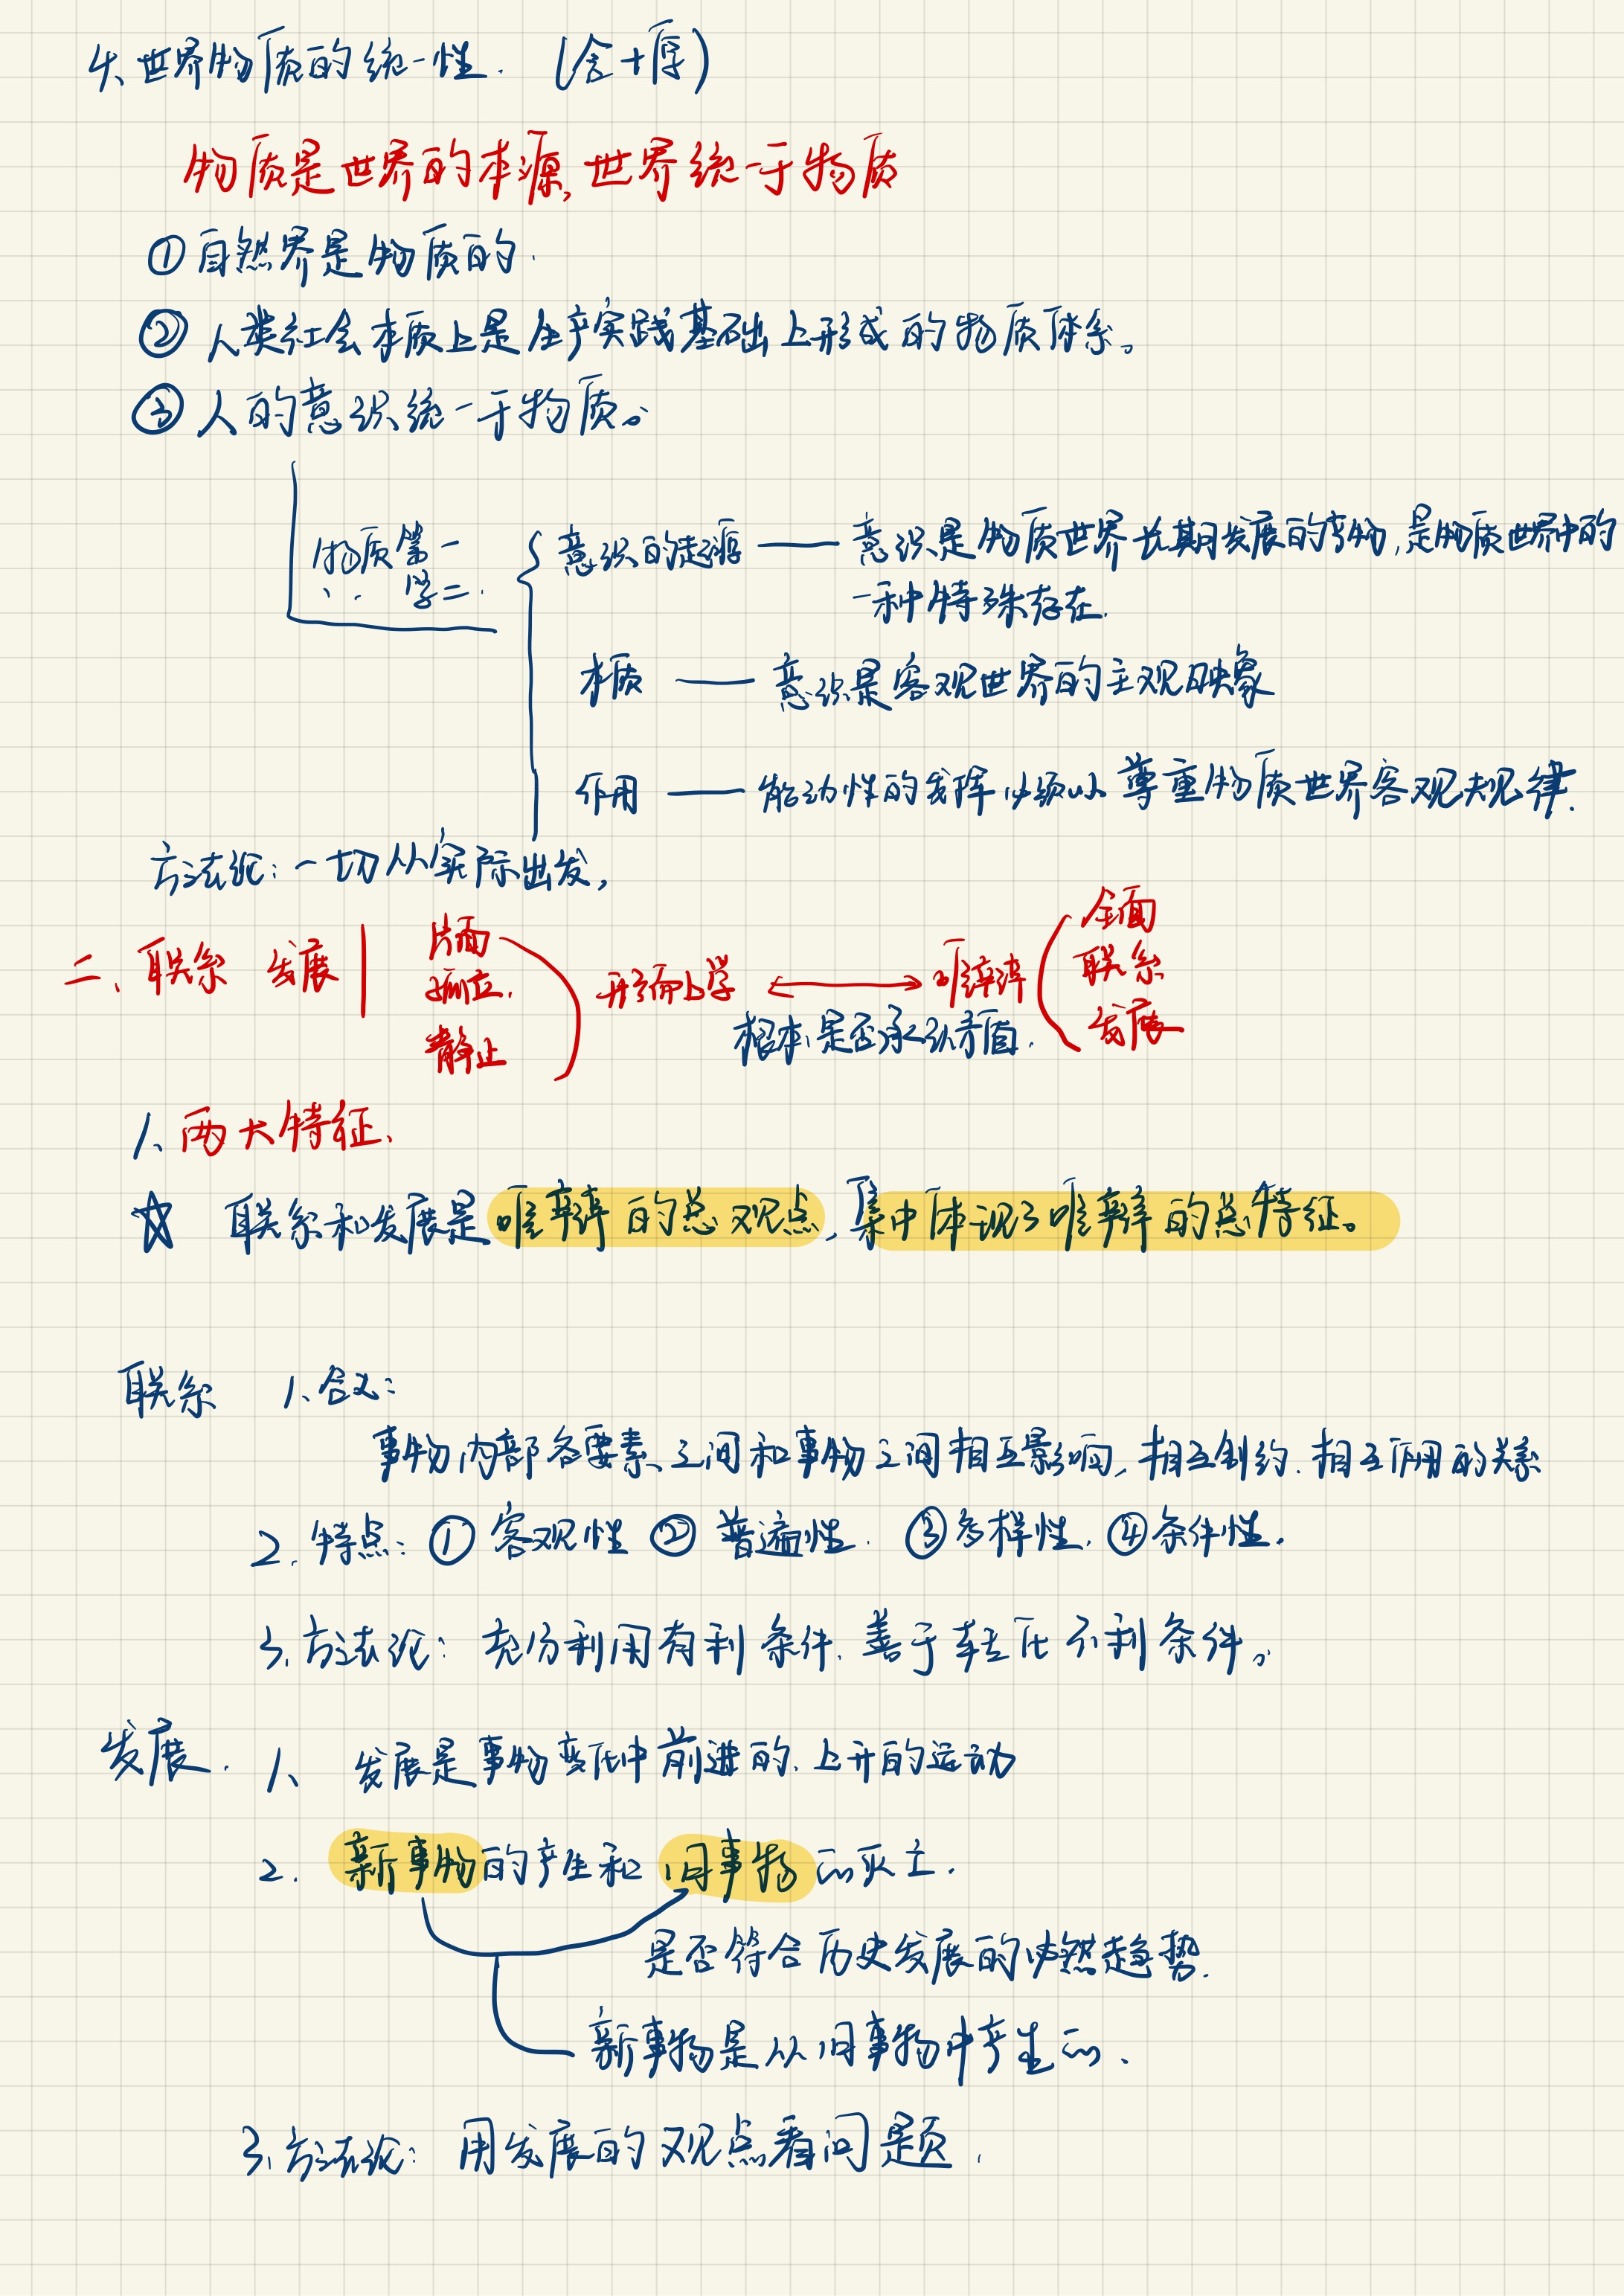 4、世界物质的统一性.（含+厚）
物质是世界的本源,世界统一于物质
①自然界是物质的.
②人类社会本质上是生产实践基础上形成的物质体系。
③人的意识统一于物质。
物质第一
学二.
意识的起源——意识是物质世界长期发展的产物,是物质世界中的
一种特殊存在.
本质——意识是客观世界的主观映象
作用——能动性的发挥必须以尊重物质世界客观规律.
方法论:一切从实际出发,
二、联系 发展
片面
孤立.
静止
形而上学 ←→ 唯辩
全面
联系
发展
根本:是否承认矛盾.
1、两大特征、
☆ 联系和发展是唯辩的总观点,集中体现了唯辩的总特征。
联系 1、含义:
事物内部各要素之间和事物之间相互影响,相互制约.相互作用的关系
2.特点:①客观性②普遍性.③多样性.④条件性.
3.方法论:充份利用有利条件.善于转化不利条件。
发展.1、发展是事物变化中前进的、上升的运动
2.新事物的产生和旧事物的灭亡.
是否符合历史发展的必然趋势.
新事物是从旧事物中产生的、
3.方法论:用发展的观点看问题.